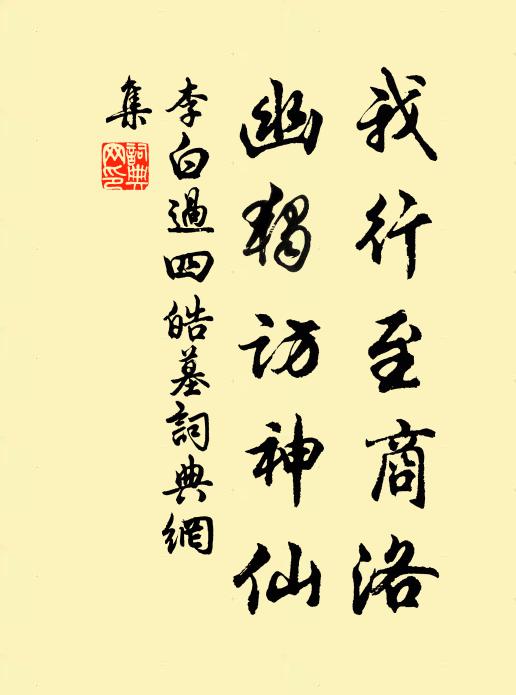 我行至商洛
幽獨訪神仙
李白過四皓墓詞典網
集
詞典網印